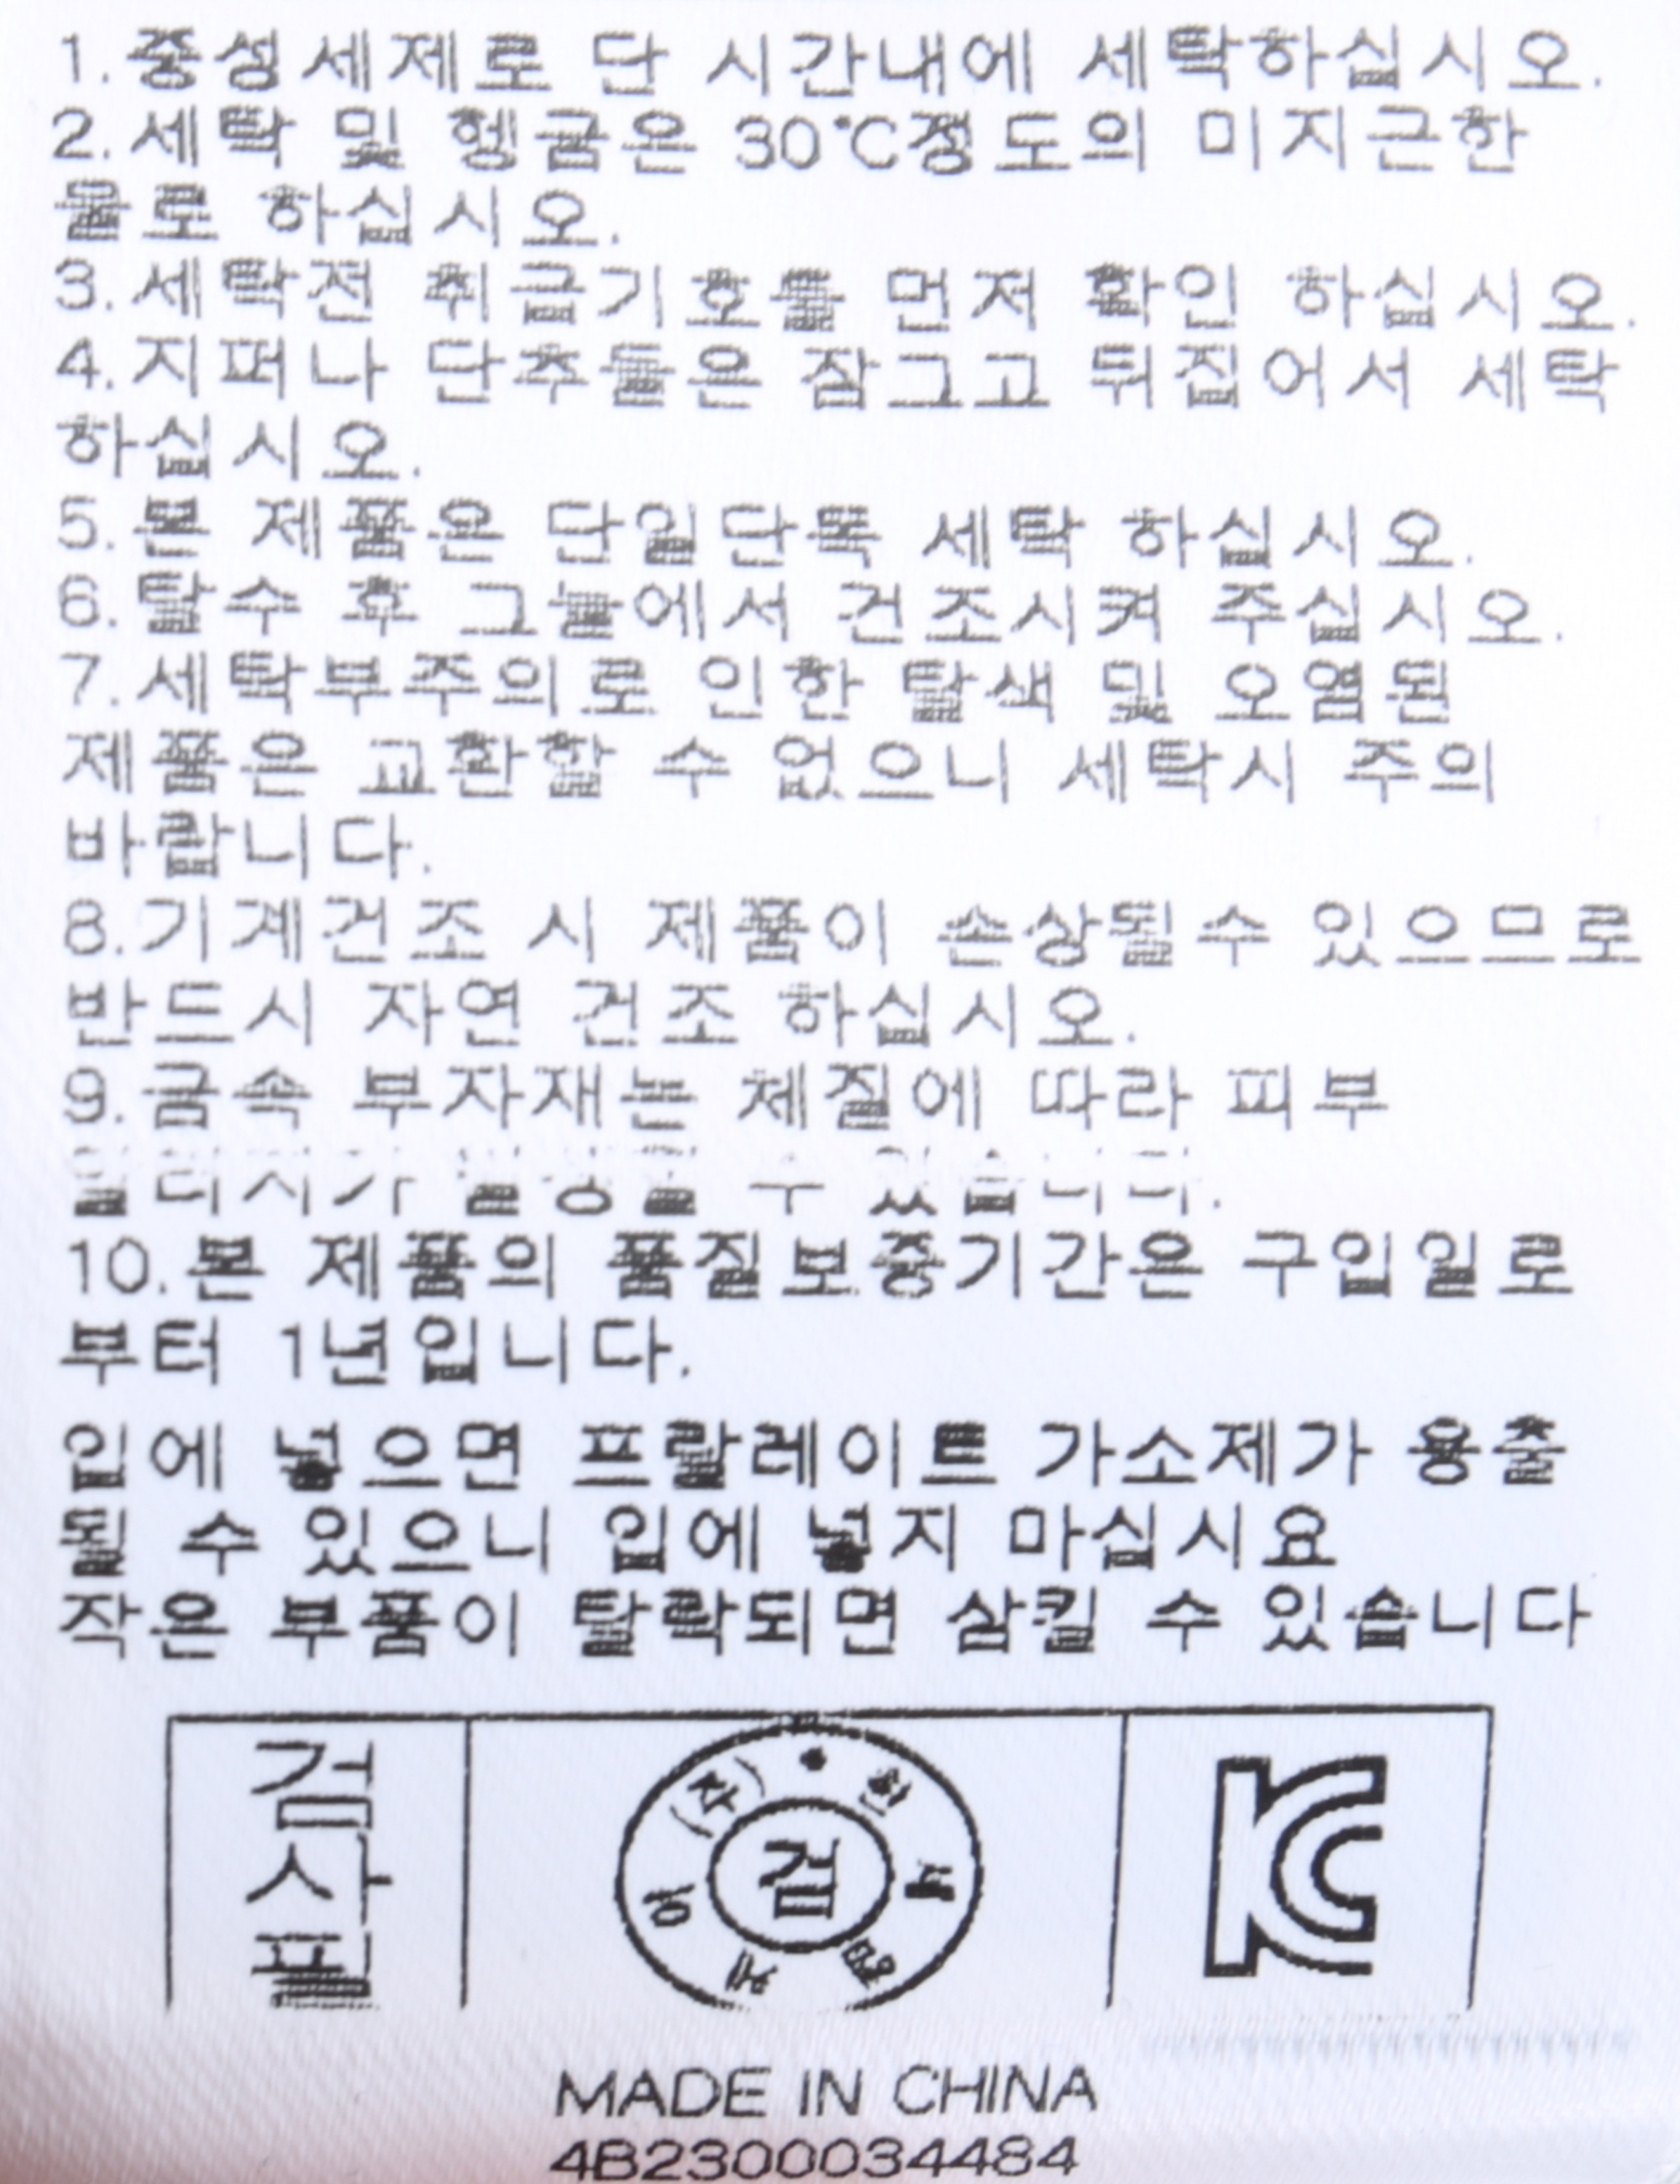 1.중성세제로 단 시간내에 세탁하십시오.
2.세탁 및 헹굼은 30℃정도의 미지근한
물로 하십시오.
3.세탁전 취급기호를 먼저 확인 하십시오.
4.지퍼나 단추들은 잠그고 뒤집어서 세탁
하십시오.
5.본 제품은 단일단독 세탁 하십시오.
6.탈수 후 그늘에서 건조시켜 주십시오.
7.세탁부주의로 인한 탈색 및 오염된
제품은 교환할 수 없으니 세탁시 주의
바랍니다.
8.기계건조 시 제품이 손상될수 있으므로
반드시 자연 건조 하십시오.
9.금속 부자재는 체질에 따라 피부
수 있습니다.
10.본 제품의 품질보증기간은 구입일로
부터 1년입니다.
입에 넣으면 프탈레이트 가소제가 용출
될 수 있으니 입에 넣지 마십시요
작은 부품이 탈락되면 삼킬 수 있습니다
검사필
(주)
검
KC
MADE IN CHINA
4B2300034484